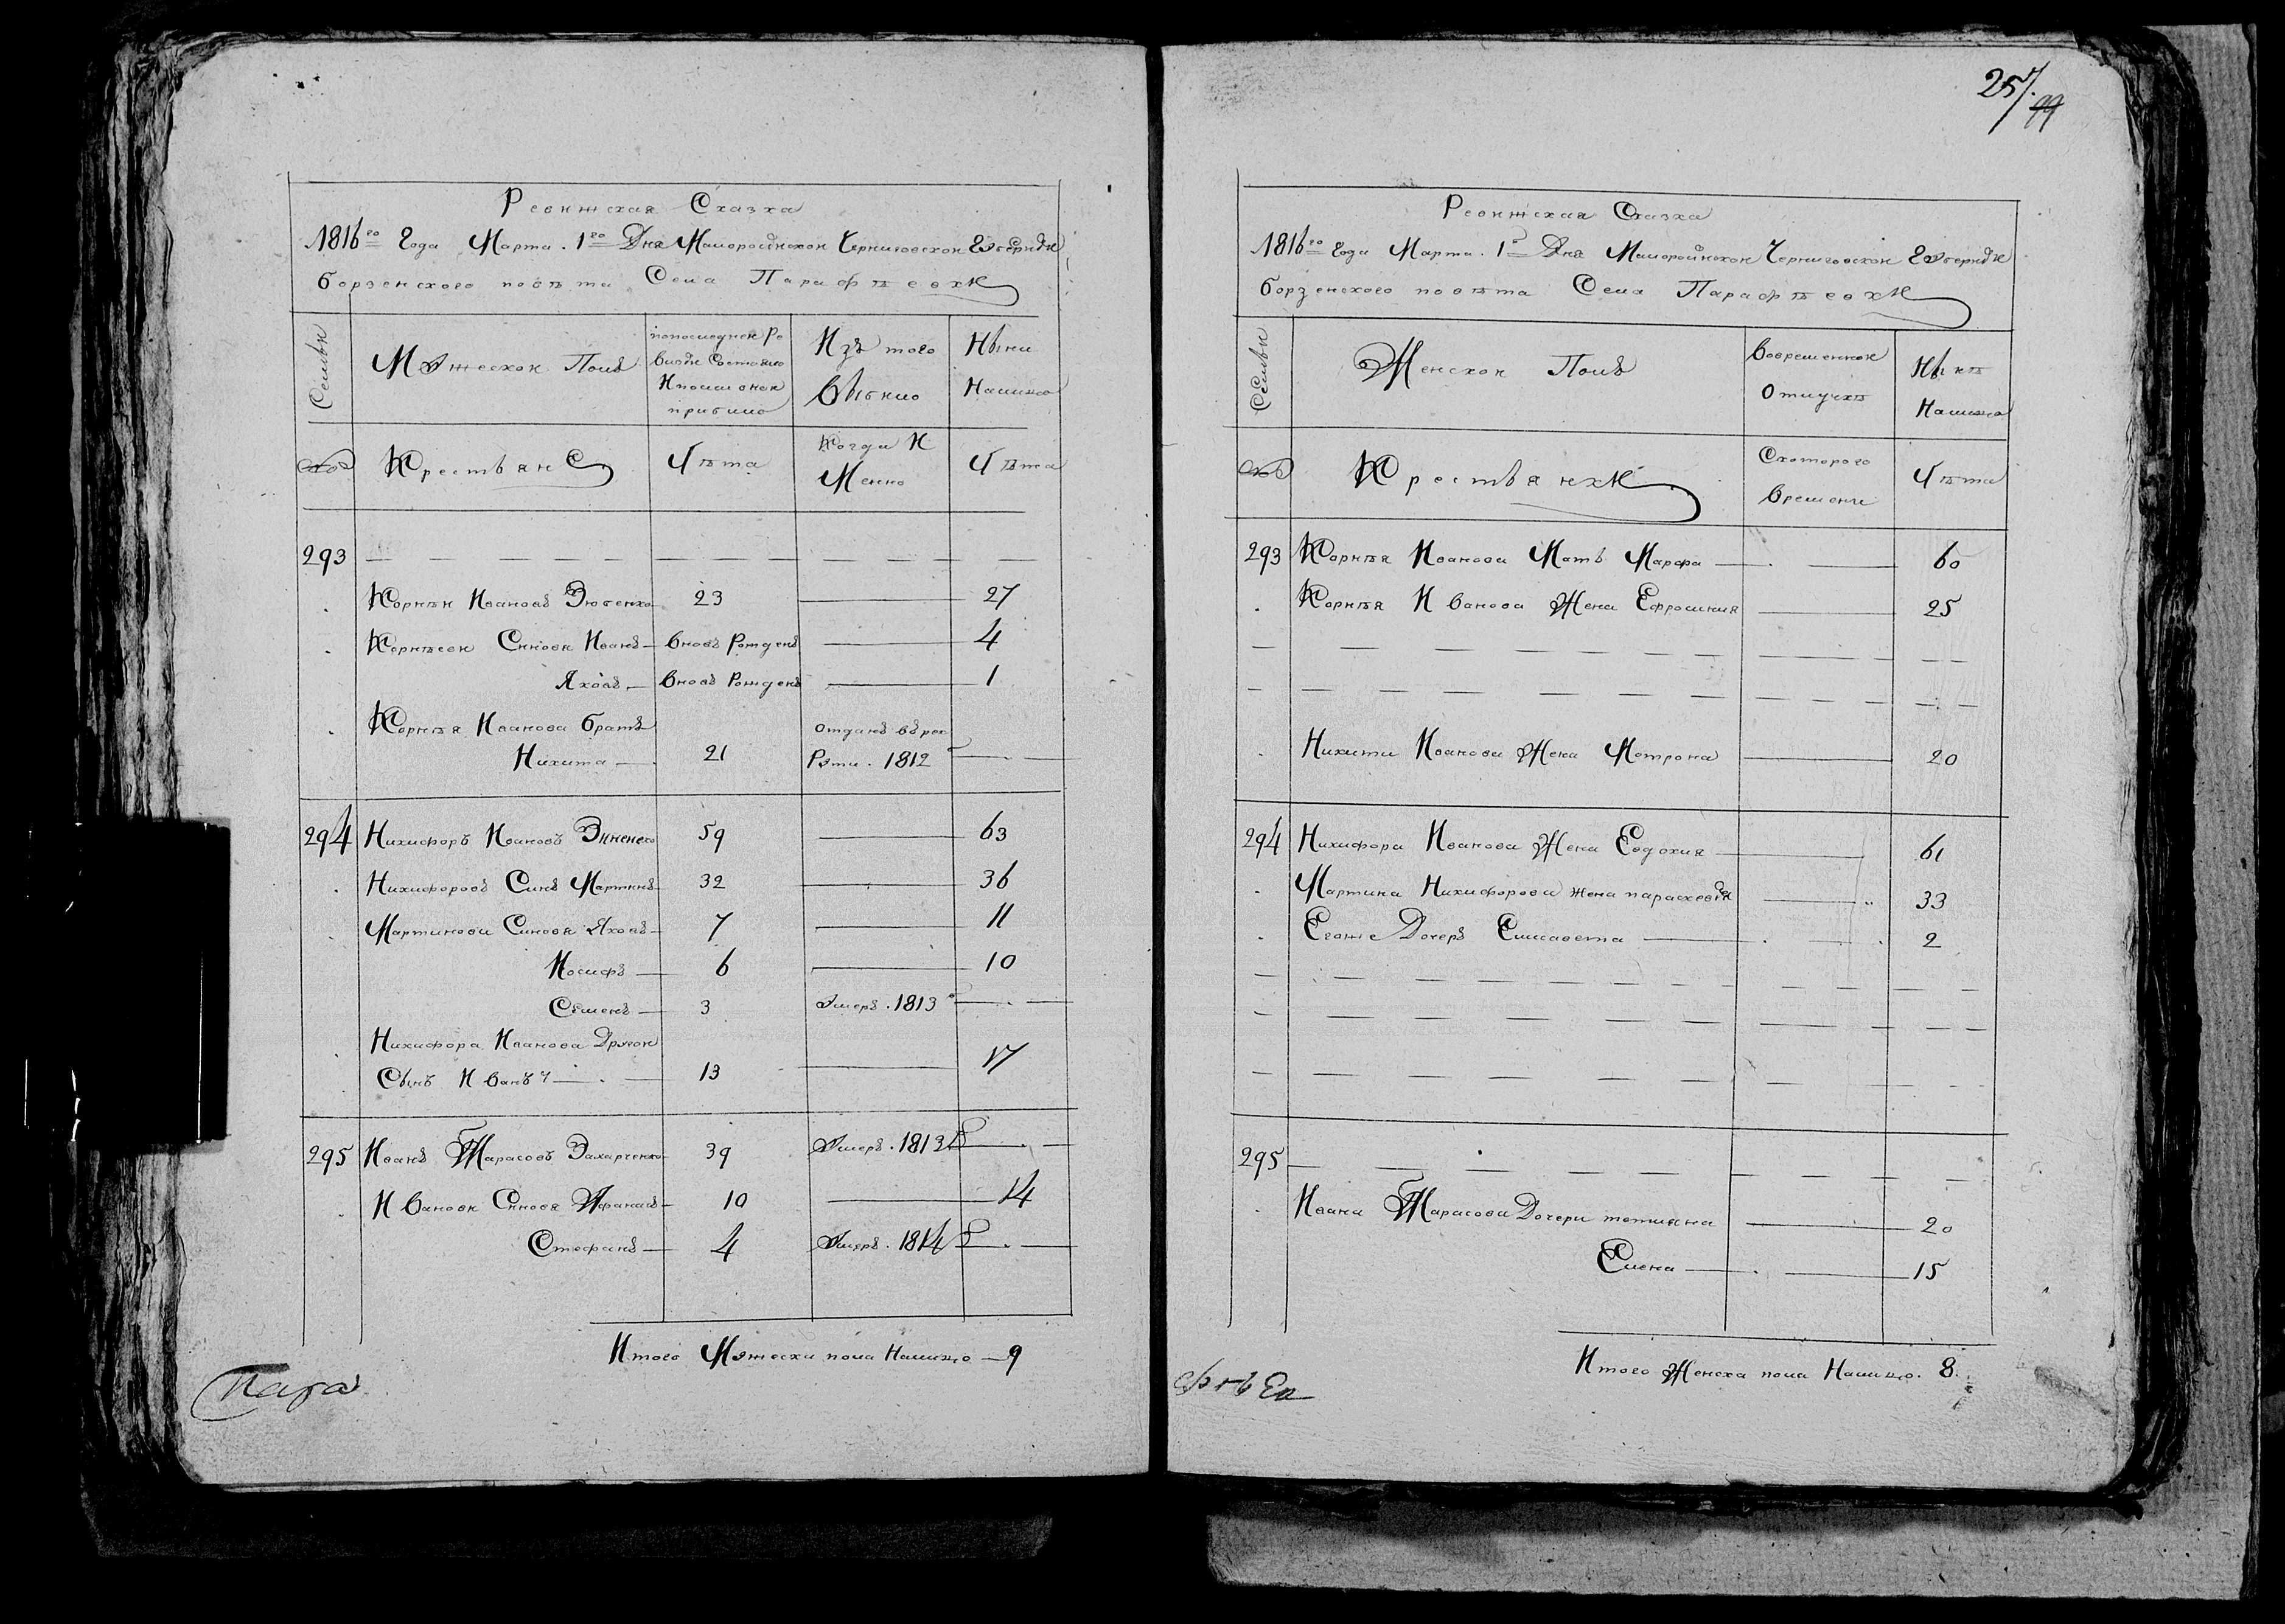 Ревижская Сказка
1816го Года Марта 1го Дня Малоросійской Черниговской Губерніи
борзенского повѣта Села Парафѣевки
Семьи
Мужеской Полъ
попоследней Ре
визіи Состояло
Ипосле оной
прибило
Изъ того
Выбило
Ныни
Налицо
№
Крестьяне
Лѣта
Когда И
Менно
Лѣта
293
Корнѣй Ивановъ 23 27
Корнѣевы Синовя Иванъ вновъ Рожденъ 4
Яковъ вновъ Рожденъ 1
Корнѣя Иванова братъ
Никита 21
отданъ врек
Руты. 1812
294 Никифоръ Ивановъ 59 63
Никифоровъ Синъ Мартинъ 32 36
Мартинови Синовя Яковъ 7 11
Иосифъ 6 10
Семенъ 3 Умеръ. 1813
Никифора Иванова Другой
Сынъ Иванъ 13 17
295 Иванъ Тарасовъ Захарченко 39 Умеръ. 1813
Ивановы Синовя Афанасъ 10 14
Стефанъ 4 Умеръ. 1814
Итого Мужеска пола Налицо 9
Пара
257.
99
Ревижская Сказка
1816го Года Марта. 1 Дня Малоросійской Черниговской Губерніи
борзенского повѣта Села Парафѣевки
Семьи
Женской Полъ
Вовременной
Отлучкѣ
Нынѣ
Налицо
№
Крестьянки
Скоторого
Времени
Лѣта
293 Корнѣя Иванова Мать Марфа 60
Корнѣя Иванова Жена Ефросиния 25
Никити Иванова Жена Мотрона 20
294 Никифора Иванова Жена Евдокия 61
Мартина Никифорова жена парасковія 33
Егоже Дочеръ Елисавета 2
295
Ивана Тарасова Дочери татияна 20
Елена 15
Итого Женска пола Налицо. 8.